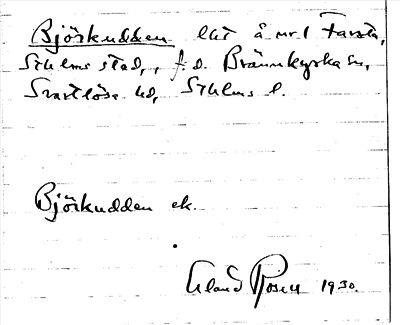 Björkudden lht å nr 1 Farsta,
Sthlms stad, f.d. Brännkyrka sn,
Svartlösa hd, Sthlms l.
Björkudden ek.
Rosell 1930.